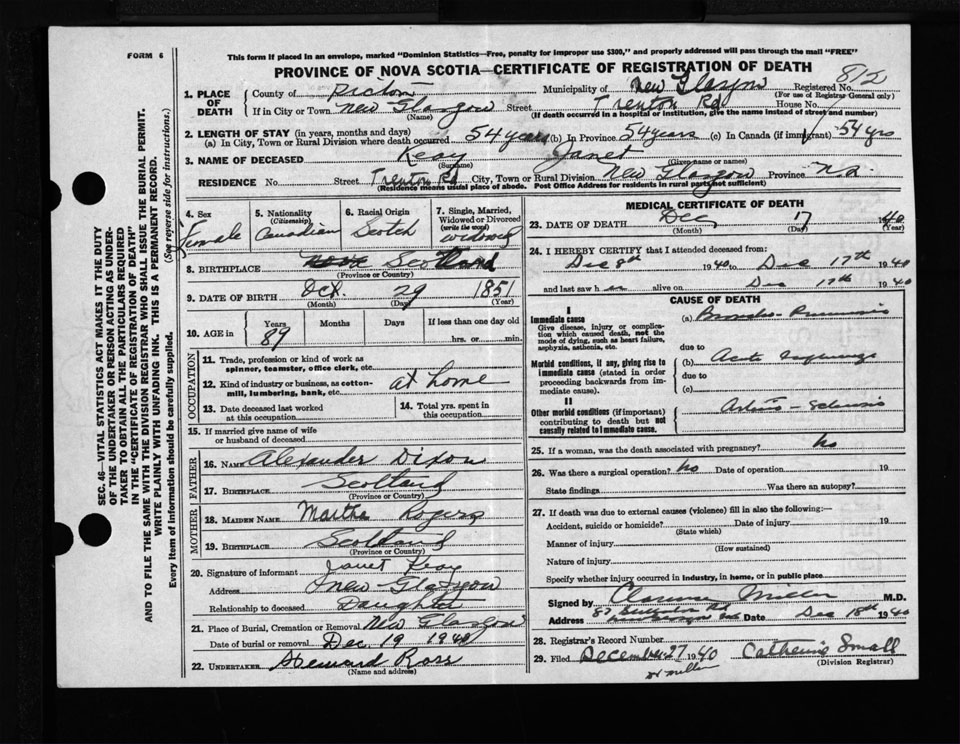 FORM 6
This form if placed in an envelope, marked "Dominion Statistics—Free, penalty for improper use $300," and properly addressed will pass through the mail "FREE"
PROVINCE OF NOVA SCOTIA—CERTIFICATE OF REGISTRATION OF DEATH
812
1. PLACE OF DEATH
County of Pictou Municipality of New Glasgow Registered No.
(For use of Registrar General only)
If in City or Town New Glasgow Street Trenton Rd House No.
(Name) (If death occurred in a hospital or institution, give the name instead of street and number)
2. LENGTH OF STAY (in years, months and days)
(a) In City, Town or Rural Division where death occurred 54 years (b) In Province 54 years (c) In Canada (if immigrant) 54 yrs
3. NAME OF DECEASED Keay Janet
(Surname) (Given name or names)
RESIDENCE No. Street Trenton Rd City, Town or Rural Division New Glasgow Province N.S.
(Residence means usual place of abode. Post Office Address for residents in rural parts not sufficient)
SEC. 46—VITAL STATISTICS ACT MAKES IT THE DUTY
OF THE UNDERTAKER OR PERSON ACTING AS UNDER-
TAKER TO OBTAIN ALL THE PARTICULARS REQUIRED
IN THE "CERTIFICATE OF REGISTRATION OF DEATH"
AND TO FILE THE SAME WITH THE DIVISION REGISTRAR WHO SHALL ISSUE THE BURIAL PERMIT.
WRITE PLAINLY WITH UNFADING INK. THIS IS A PERMANENT RECORD.
Every item of information should be carefully supplied. (See reverse side for instructions.)
4. Sex
Female
5. Nationality
(Citizenship)
Canadian
6. Racial Origin
Scotch
7. Single, Married,
Widowed or Divorced
(write the word)
widowed
8. BIRTHPLACE Scotland
(Province or Country)
9. DATE OF BIRTH Oct. 29 1851
(Month) (Day) (Year)
10. AGE in
Years Months Days If less than one day old
89 hrs. or min.
OCCUPATION
11. Trade, profession or kind of work as
spinner, teamster, office clerk, etc.
12. Kind of industry or business, as cotton-
mill, lumbering, bank, etc. at home
13. Date deceased last worked
at this occupation
14. Total yrs. spent in
this occupation
15. If married give name of wife
or husband of deceased
FATHER
16. NAME Alexander Dixon
17. BIRTHPLACE Scotland
(Province or Country)
MOTHER
18. MAIDEN NAME Martha Rogers
19. BIRTHPLACE Scotland
(Province or Country)
20. Signature of informant Janet Keay
Address New Glasgow
Relationship to deceased Daughter
21. Place of Burial, Cremation or Removal New Glasgow
Date of burial or removal Dec. 19 1940
22. UNDERTAKER Ross
(Name and address)
MEDICAL CERTIFICATE OF DEATH
23. DATE OF DEATH Dec 17 1940
(Month) (Day) (Year)
24. I HEREBY CERTIFY that I attended deceased from:
Dec 8th 1940 to Dec 17th 1940
and last saw h er alive on Dec 17th 1940
CAUSE OF DEATH
I
Immediate cause
Give disease, injury or complica-
tion which caused death, not the
mode of dying, such as heart failure,
asphyxia, asthenia, etc.
(a) Broncho-Pneumonia
due to
Morbid conditions, if any, giving rise to
immediate cause (stated in order
proceeding backwards from im-
mediate cause).
(b) Acute
due to
(c)
II
Other morbid conditions (if important)
contributing to death but not
causally related to immediate cause.
Arterio-Sclerosis
25. If a woman, was the death associated with pregnancy? No
26. Was there a surgical operation? No Date of operation 19
State findings Was there an autopsy?
27. If death was due to external causes (violence) fill in also the following:—
Accident, suicide or homicide? Date of injury 19
(State which)
Manner of injury
(How sustained)
Nature of injury
Specify whether injury occurred in industry, in home, or in public place
Signed by Clarence Miller M.D.
Address Date Dec 18th 1940
28. Registrar's Record Number
29. Filed December 27 1940 Catherine Small
(Division Registrar)
Dr Miller